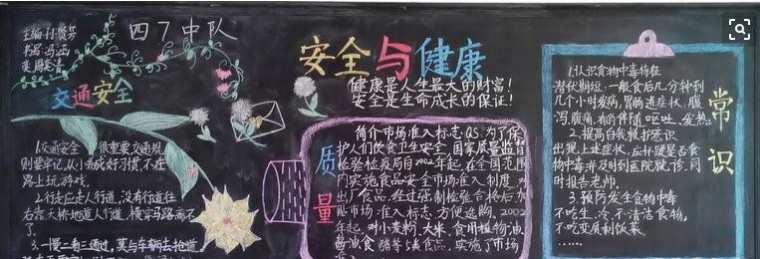 四7中队
主编
书写
安全与健康
健康是人生最大的财富！
安全是生命成长的保证！
交通安全
1.交通安全 很重要交通规
则要牢记,从小养成好习惯,不在
路上玩游戏.
2.行走应走人行道,没有行道往
右靠天桥地道人行道,横穿马路
了.
3.一慢二看三通过,莫与车辆去抢道.
质量
简介市场准入标志:QS,为了保
护人们饮食卫生安全,国家质量监督
检验检疫局自2002年起,在全国范围
内实施食品安全市场准入制度,对
出厂食品,经过强制检验合格后加
市场 准入标志,方便选购,2002
年起,对小麦粉,大米,食用植物油,
酱油食醋等5类食品,实施了市场
常识
1.认识食物中毒特征
潜伏期短:一般食后几分钟到
几个小时发病,胃肠道症状:腹
泻,腹痛,有的伴随呕吐、发热.
2.提高自我救护意识
出现上述症状,应怀疑是否食
物中毒,并及时到医院就诊,同
时报告老师.
3.预防发生食物中毒
不吃生、冷、不清洁食物,
不吃变质剩饭菜
......